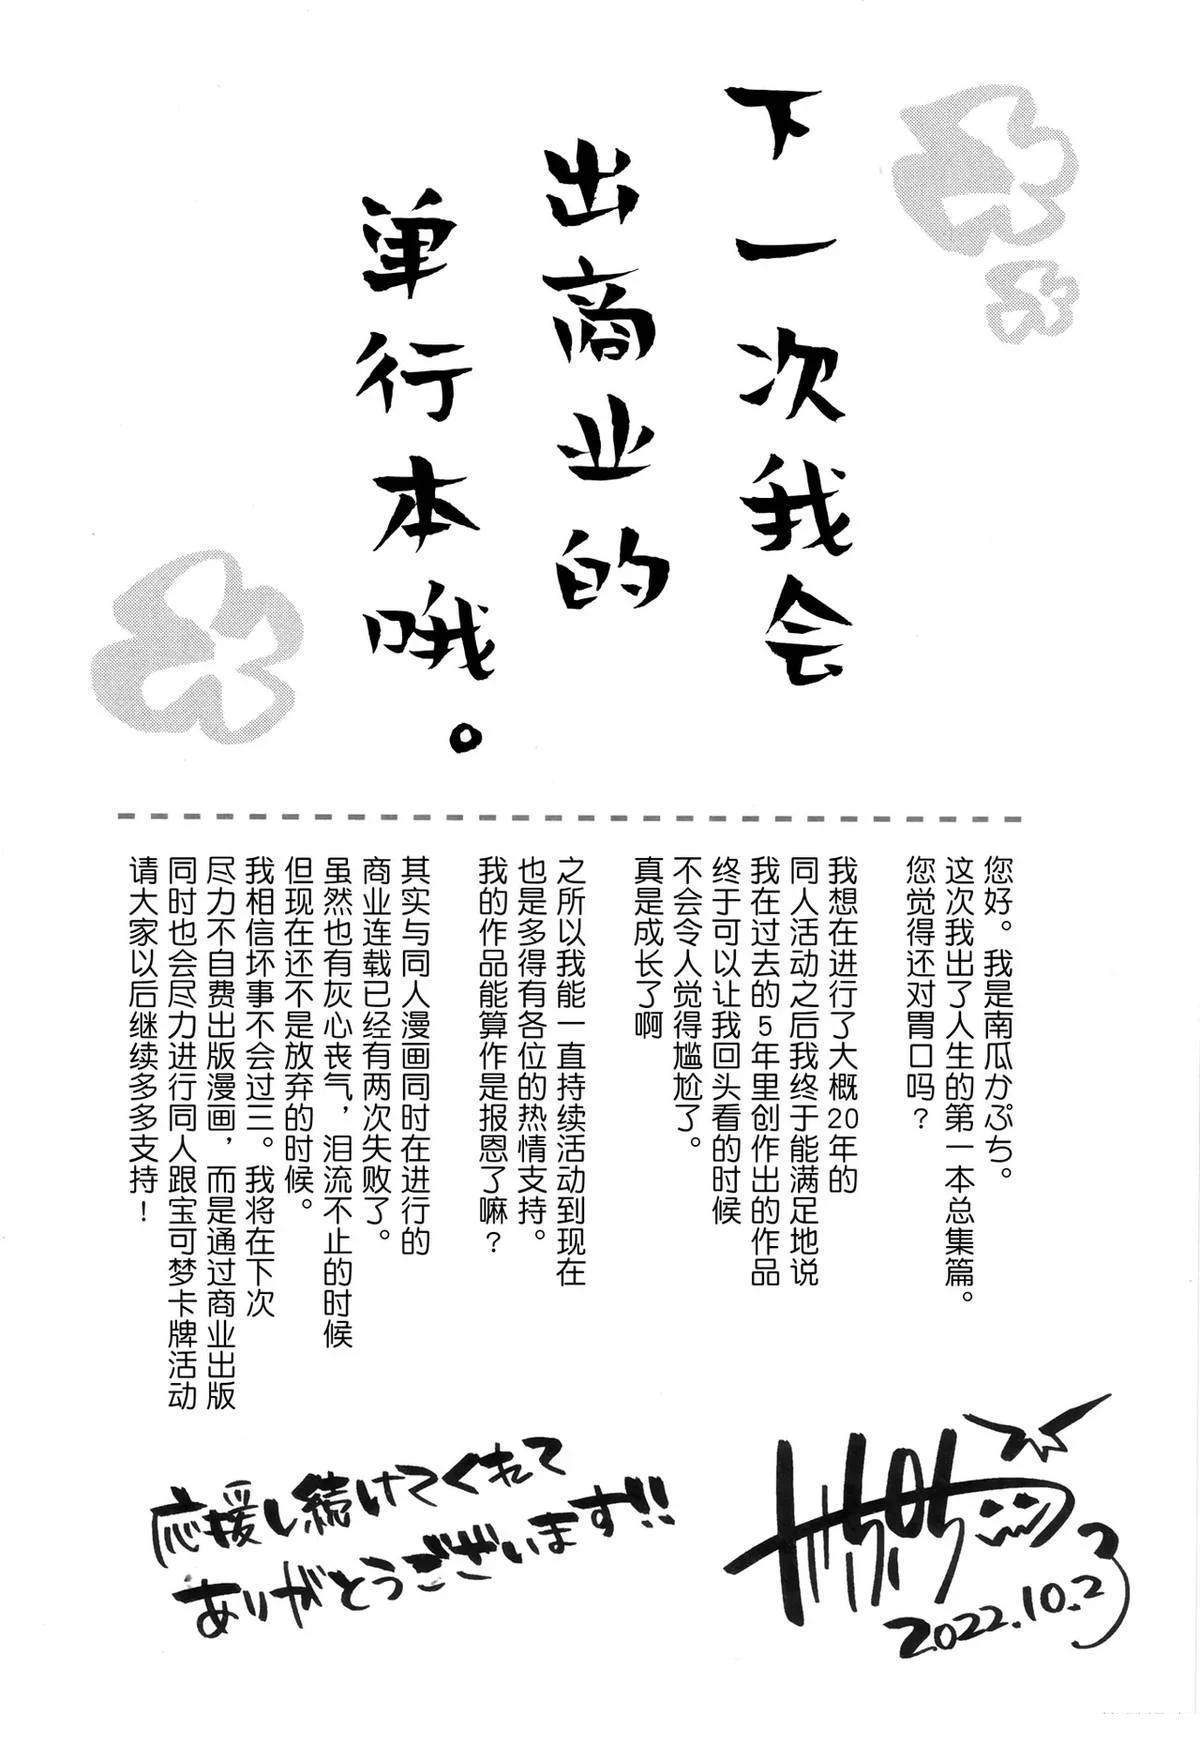 下一次我会
出商业的
单行本哦。
您好。我是南瓜かぷち。
这次我出了人生的第一本总集篇。
您觉得还对胃口吗?
我想在进行了大概20年的
同人活动之后我终于能满足地说
我在过去的5年里创作出的作品
终于可以让我回头看的时候
不会令人觉得尴尬了。
真是成长了啊
之所以我能一直持续活动到现在
也是多得有各位的热情支持。
我的作品能算作是报恩了嘛?
其实与同人漫画同时在进行的
商业连载已经有两次失败了。
虽然也有灰心丧气,泪流不止的时候
但现在还不是放弃的时候。
我相信坏事不会过三。我将在下次
尽力不自费出版漫画,而是通过商业出版
同时也会尽力进行同人跟宝可梦卡牌活动
请大家以后继续多多支持!
応援し続けてくれて
ありがとうございます!!
2022.10.23